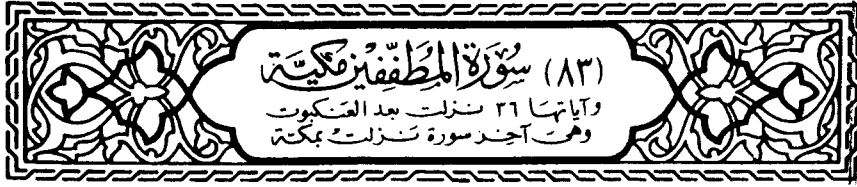 (٨٣) سُورَة المُطَفِّفِين مَكيَّة
وآياتها ٣٦ نزلت بعد العنكبوت
وهى آخر سورة نزلت بمكة